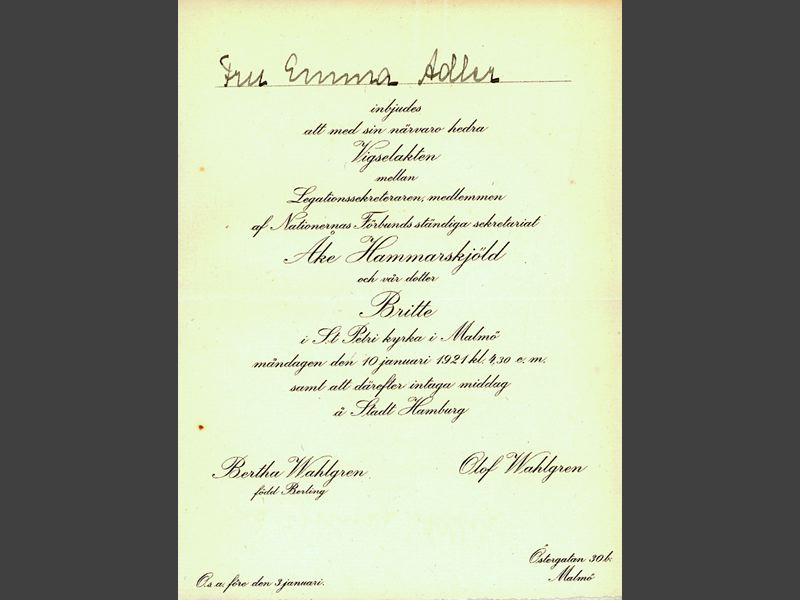 Fru Emma Adler
inbjudes
att med sin närvaro hedra
Vigselakten
mellan
Legationssekreteraren, medlemmen
af Nationernas Förbunds ständiga sekretariat
Åke Hammarskjöld
och vår dotter
Britte
i S:t Petri kyrka i Malmö
måndagen den 10 januari 1921 kl. 4,30 e. m.
samt att därefter intaga middag
å Stadt Hamburg
Bertha Wahlgren
född Berling
Olof Wahlgren
Östergatan 30 b.
Malmö
O.s.a. före den 3 januari.